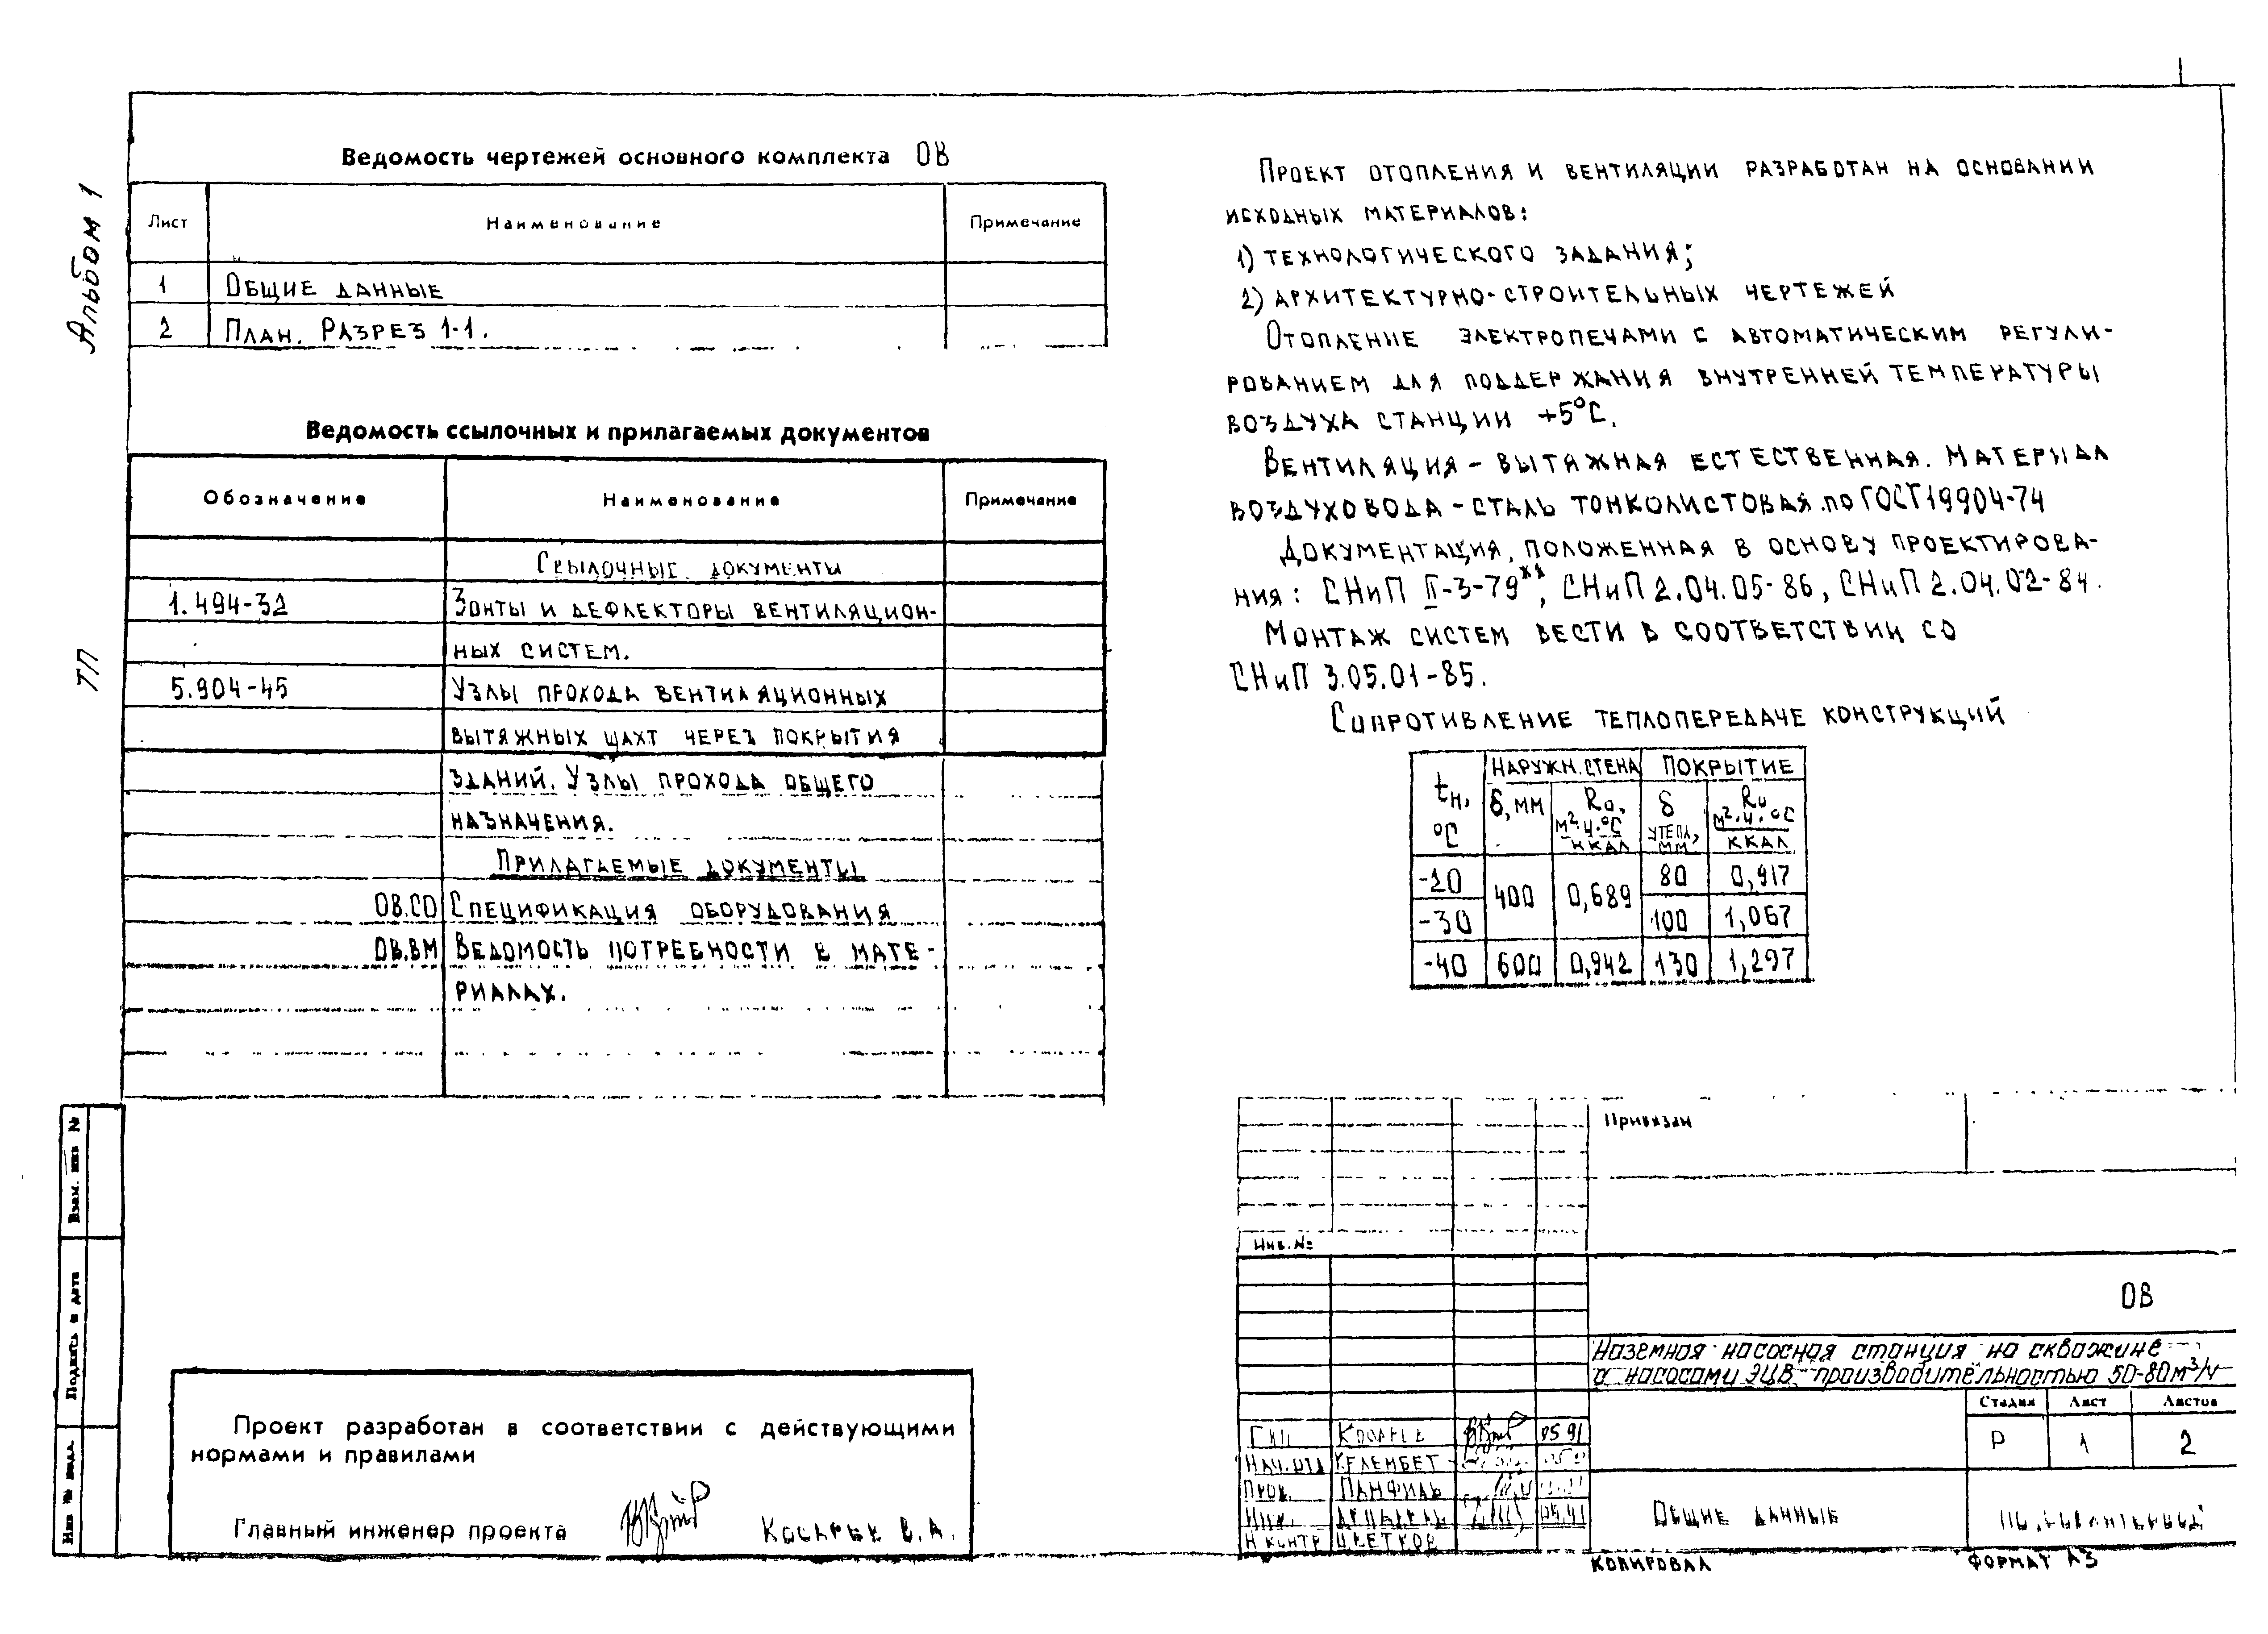 Альбом 1
ТП
Ведомость чертежей основного комплекта ОВ
Лист Наименование Примечание
1 Общие данные
2 План. Разрез 1-1.
Ведомость ссылочных и прилагаемых документов
Обозначение Наименование Примечание
Ссылочные документы
1.494-32 Зонты и дефлекторы вентиляцион-
ных систем.
5.904-45 Узлы прохода вентиляционных
вытяжных шахт через покрытия
зданий. Узлы прохода общего
назначения.
Прилагаемые документы
ОВ.СО Спецификация оборудования
ОВ.ВМ Ведомость потребности в мате-
риалах.
Проект разработан в соответствии с действующими
нормами и правилами
Главный инженер проекта Косарев В.А.
Взам. инв №
Подпись и дата
Инв № подл.
Проект отопления и вентиляции разработан на основании
исходных материалов:
1) технологического задания;
2) архитектурно-строительных чертежей
Отопление электропечами с автоматическим регули-
рованием для поддержания внутренней температуры
воздуха станции +5°С.
Вентиляция - вытяжная естественная. Материал
воздуховода - сталь тонколистовая по ГОСТ 19904-74
Документация, положенная в основу проектирова-
ния: СНиП II-3-79**, СНиП 2.04.05-86, СНиП 2.04.02-84.
Монтаж систем вести в соответствии со
СНиП 3.05.01-85.
Сопротивление теплопередаче конструкций
tн, °С Наружн. стена Покрытие
δ, мм Rо, м²·ч·°С ккал δ утепл, мм Rо м²·ч·°С ккал
-20 400 0,689 80 0,917
-30 100 1,067
-40 600 0,942 130 1,297
Привязан
Инв. №
ОВ
Наземная насосная станция на скважине
с насосами ЭЦВ производительностью 50-80 м³/ч
Стадия Лист Листов
Р 1 2
ГИП Косарев 05.91
Нач.отд Келембет
Пров. Панфиль
Инж. 05.91
Н контр Цветков
Общие данные
Копировал Формат А3